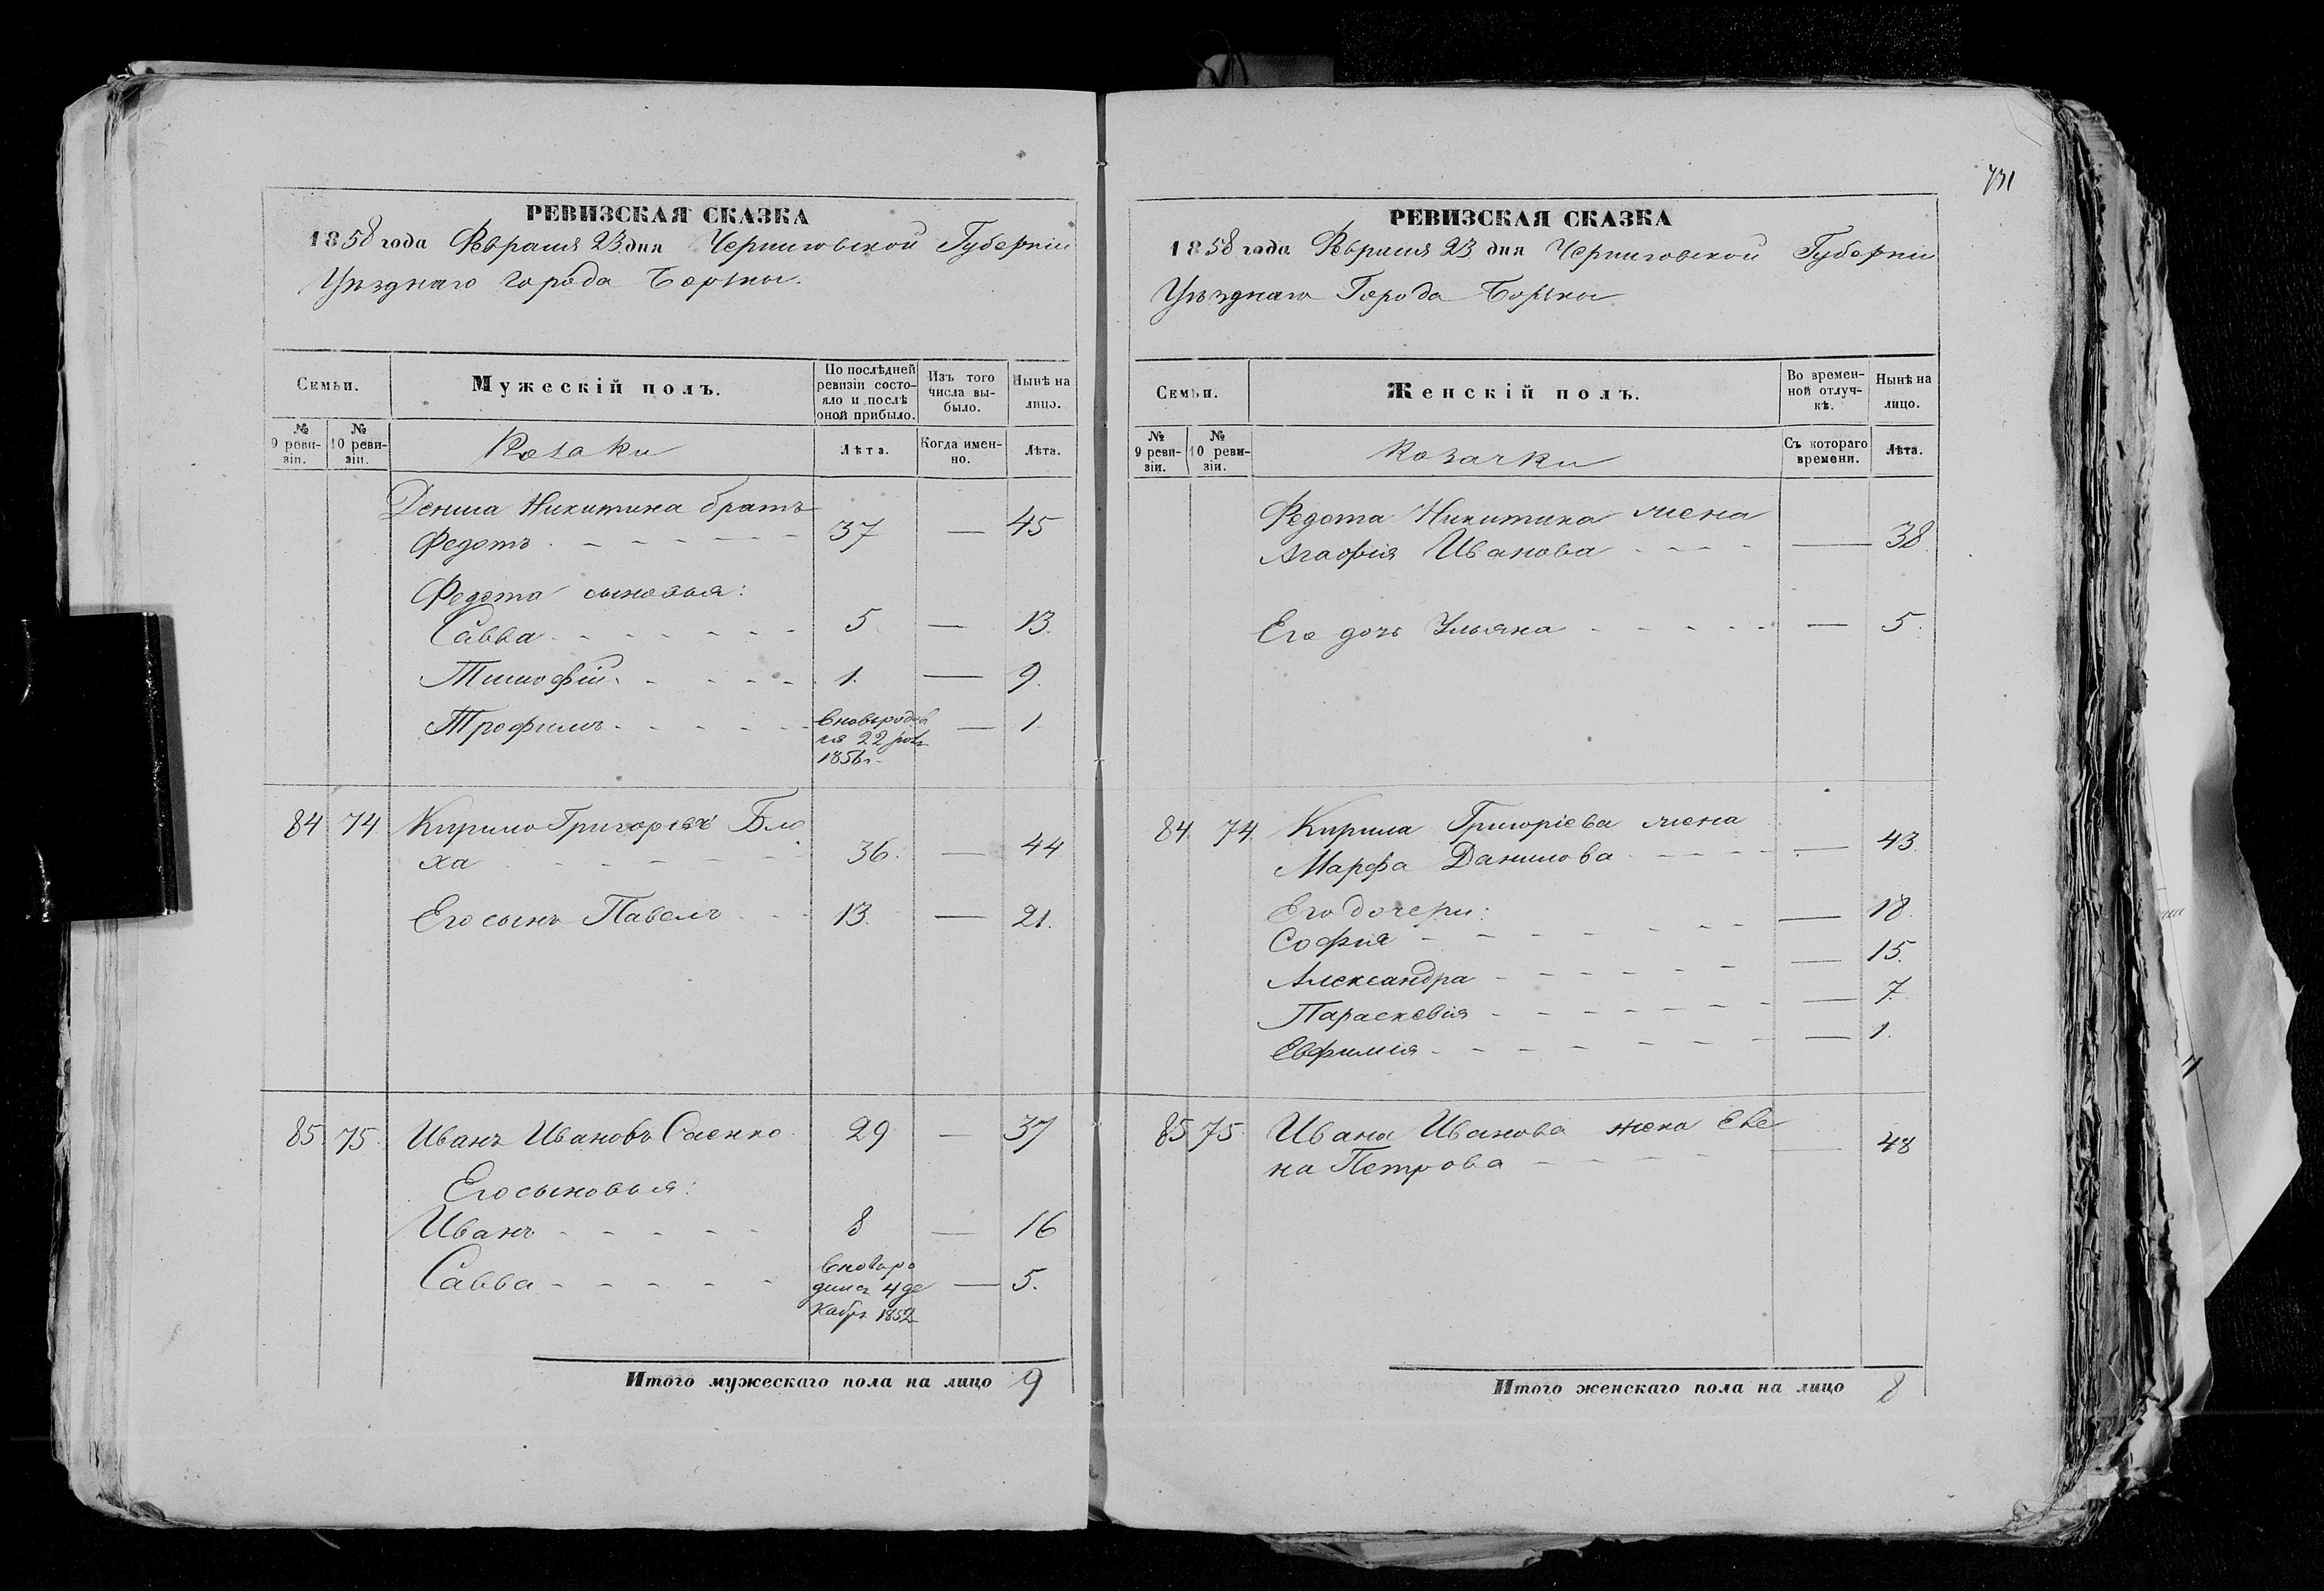 РЕВИЗСКАЯ СКАЗКА
1858 года Февраля 23 дня Черниговской Губерніи
Уѣзднаго города Борзны.
Семьи.
Мужескій полъ.
По послѣдней ревизіи состояло и послѣ оной прибыло.
Изъ того числа выбыло.
Нынѣ на лицо.
№ 9 ревизіи.
№ 10 ревизіи.
Козаки
Лѣта.
Когда именно.
Лѣта.
Дениса Никитина братъ
Федотъ 37 — 45
Федота сыновья:
Савва 5 — 13.
Тимофій 1. — 9.
Трофимъ — 1.
ся 22
1856г.
84 74 Кирило Григорьевъ Бло
ха 36. — 44
Его сынъ Павелъ 13. — 21.
85 75 Иванъ Ивановъ Саенко 29 — 37
Его сыновья:
Иванъ 8 — 16
Савва вновь ро — 5.
дился 4 де
кабря 1852
Итого мужескаго пола на лицо 9
731
РЕВИЗСКАЯ СКАЗКА
1858 года Февраля 23 дня Черниговской Губерніи
Уѣзднаго Города Борзны
Семьи.
Женскій полъ.
Во временной отлучкѣ.
Нынѣ на лицо.
№ 9 ревизіи.
№ 10 ревизіи.
Козачки
Съ котораго времени.
Лѣта.
Федота Никитина жена
Агафія Иванова — 38.
Его дочь Ульяна — 5.
84 74 Кирила Григоріева жена
Марфа Данилова — 43.
Его дочери:
Софія — 18.
Александра — 15.
Параскевія — 7.
Евфимія — 1.
85 75 Ивана Иванова жена Еле
на Петрова — 48
Итого женскаго пола на лицо 8